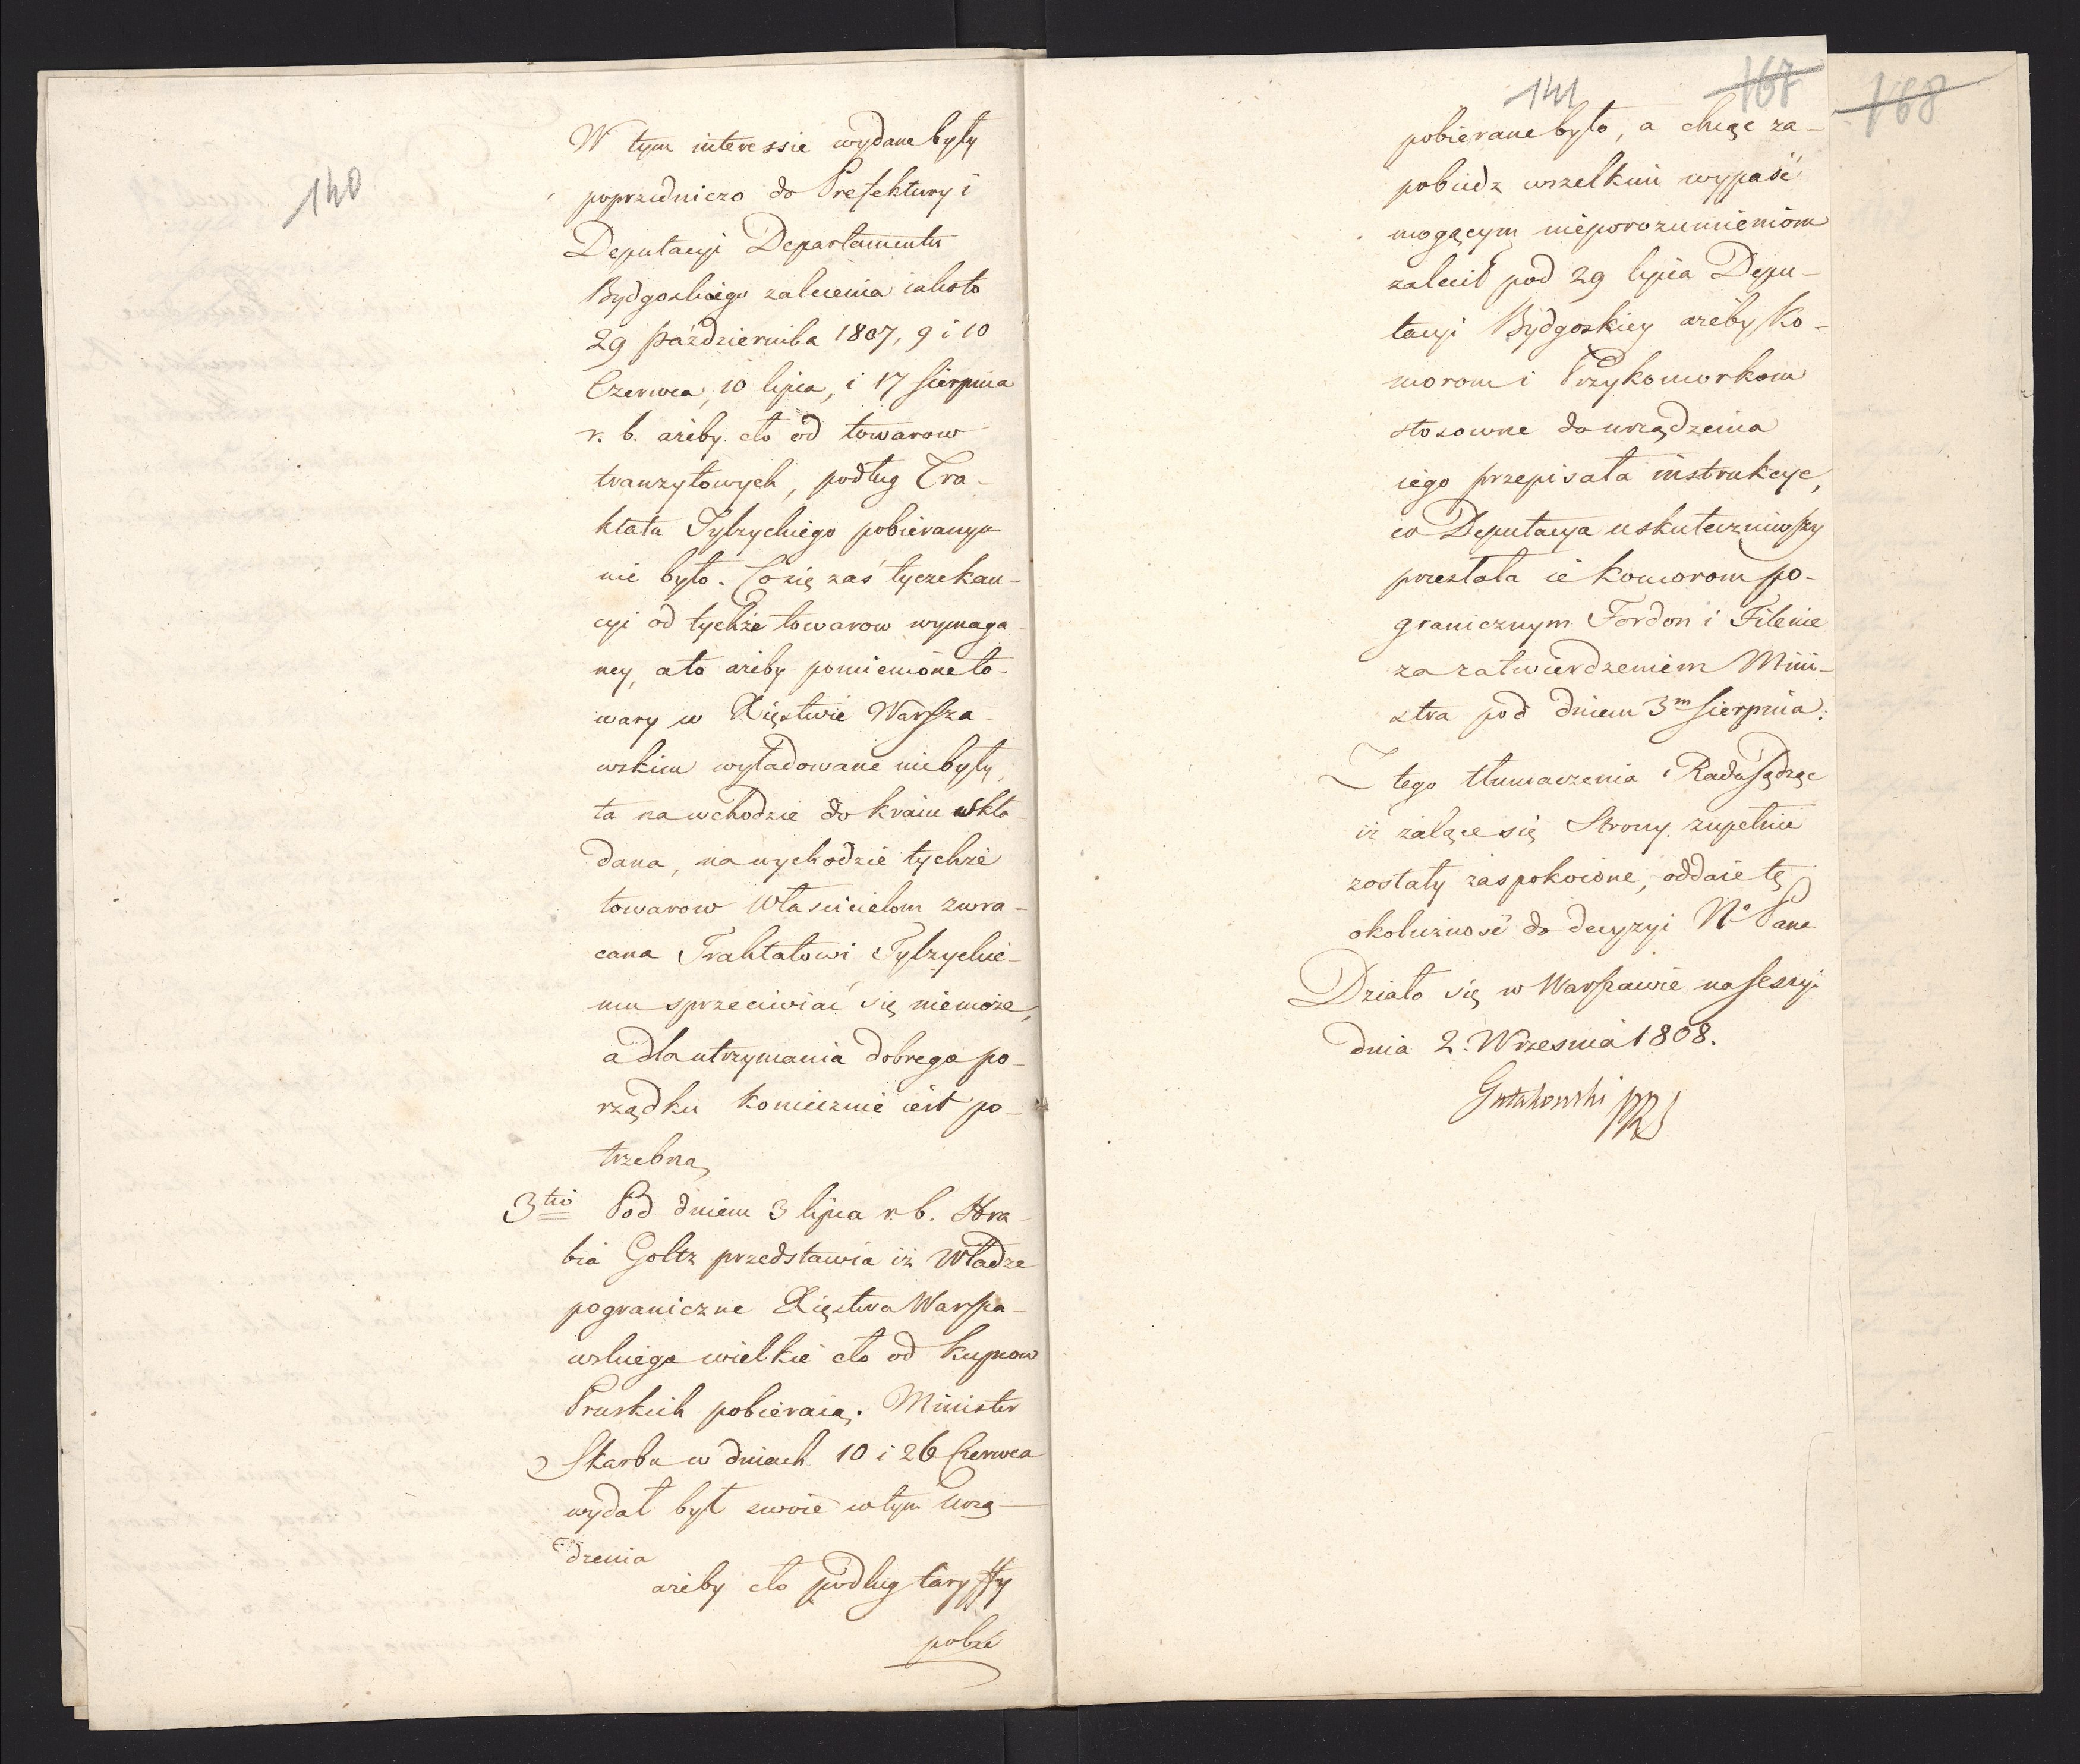 140
W tym interessie wydane były
poprzedniczo do Prefektury i
Deputacyi Departamentu
Bydgoskiego zalecenia iakoto
29 Października 1807, 9 i 10
Czerwca, 10 lipca, i 17 Sierpnia
r. b. ażeby cło od towarow
tranzytowych, podług Tra-
ktatu Tylzyckiego pobieranym
nie było. Co się zaś tycze kau-
cyi od tychże towarow wymaga-
ney, a to ażeby pomienione to-
wary w Xięstwie Warsza-
wskim wyładowane nie były,
ta na wchodzie do kraiu skła-
dana, na wychodzie tychże
towarow Właścicielom zwra-
cana Traktatowi Tylzyckie-
mu sprzeciwiać się niemoże,
a dla utrzymania dobrego po-
rządku koniecznie iest po-
trzebną,
3tio Pod dniem 3 lipca r. b. Hra-
bia Goltz przedstawia iż Władze
pograniczne Xięstwa Warsza-
wskiego wielkie cło od kupcow
Pruskich pobieraią. Minister
Skarbu w dniach 10 i 26 Czerwca
wydał był swoie w tym Urzą-
dzenia
ażeby cło podług taryffy
pobie
141
167
168
pobierane było, a chcąc za-
pobiedz wszelkim wypaść
mogącym nieporozumieniom
zalecił pod 29 lipca Depu-
tacyi Bydgoskiey ażeby Ko-
morom i Przykomorkom
stosowne do urządzenia
iego przepisała instrukcye,
co Deputacya uskuteczniwszy
przesłała ie komorom po-
granicznym Fordon i Filenie
za zatwierdzeniem Mini-
stra pod dniem 3m Sierpnia.
Z tego tłumaczenia Rada sądząc
iż żalące się Strony zupełnie
zostały zaspokoione, oddaie tę
okoliczność do decyzyi No Pana
Działo się w Warszawie na Sessyi
dnia 2. Września 1808.
Gutakowski PRS